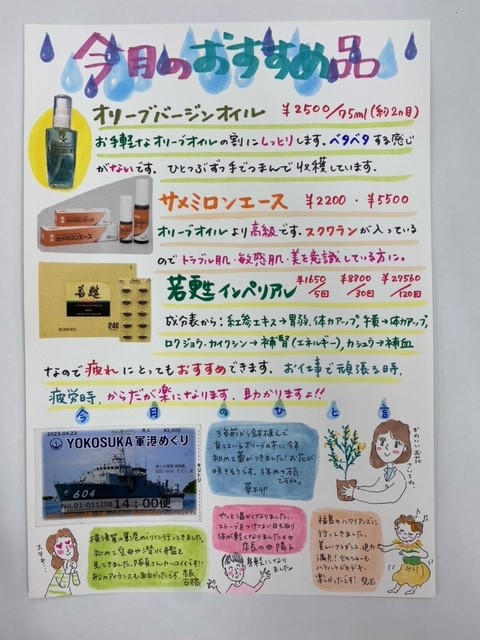 今月のおすすめ品
オリーブバージンオイル ¥2500/75ml(約2ヵ月)
お手軽なオリーブオイルの割にしっとりします。ベタベタする感じ
がないです。ひとつぶずつ手でつまんで収穫しています。
サメミロンエース ¥2200・¥5500
オリーブオイルより高級です。スクワランが入っている
のでトラブル肌・敏感肌・美を意識している方に。
若甦インペリアル ¥1650/5日 ¥8800/30日 ¥27560/120日
成分表から:紅参エキス→胃弱、体力アップ,牛黄→体力アップ,
ロクジョウ・カイクジン→補腎(エネルギー),カシュウ→補血
なので疲れにとってもおすすめできます。お仕事で頑張る時,
疲労時,からだが楽になります。助かりますよ!!
今月のひと言
2023.04.23 大人 ¥2,000
YOKOSUKA軍港めぐり
604
No.01-011208 14:00便
3年前から鉢植えで
育てているオリーブの木に今年
初めて蕾がつきました!お花が
咲きそうです。3年めの
ですね。
かわいいお花
さいてね。
横須賀の軍港めぐりに行ってきました。
初めて空母や潜水艦を
見てきました。
船のアナウンスも面白かったです。
ステキ…
やっと温かくなりました。
ストーブをつけない日もあり
体が軽くなりましたよ
身軽になり
ました
福島のハワイアンズに
行ってきました。
美しいフラダンス、迫力
満点!
ハラハラドキドキ。
楽しかったです!